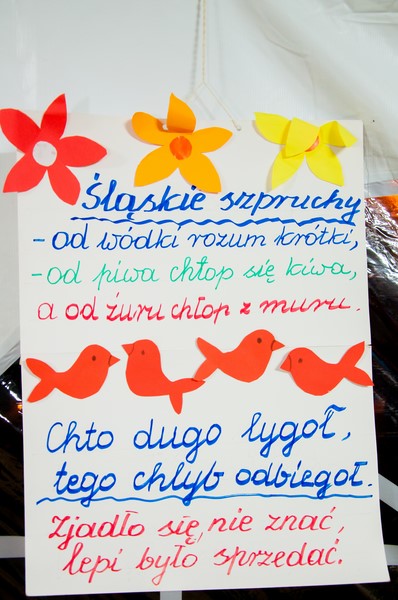 Śląskie szpruchy
- od wódki rozum krótki,
- od piwa chłop się kiwa,
a od żuru chłop z muru.
Chto dugo łygoł,
tego chlyb odbiegoł.
Zjadło się, nie znać,
lepi było sprzedać.